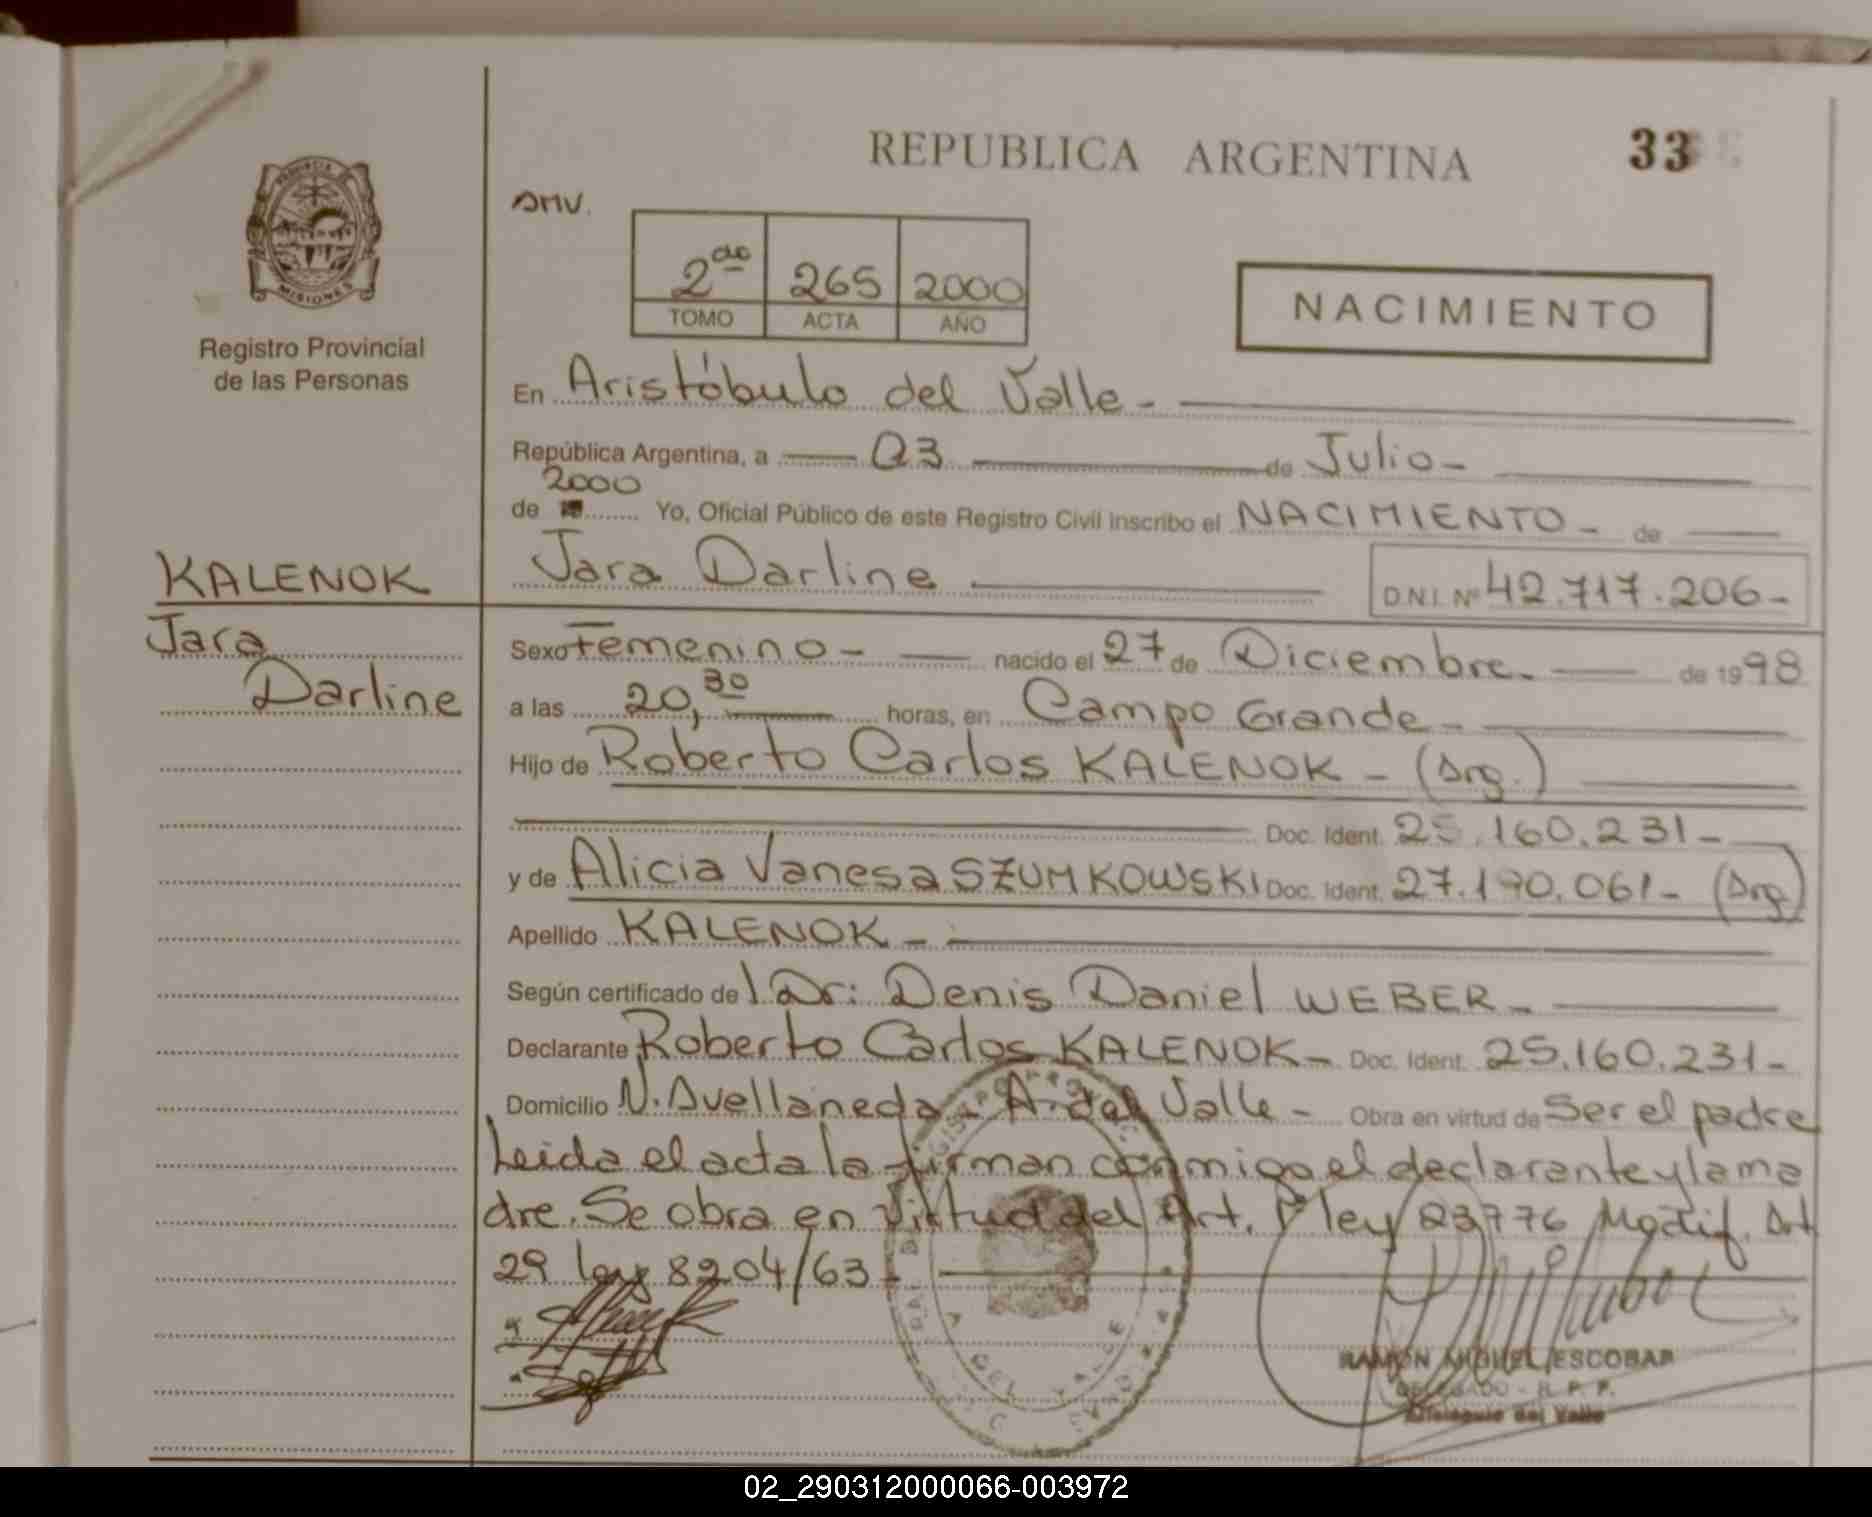 REPUBLICA ARGENTINA
33
PROVINCIA DE
MISIONES
Registro Provincial
de las Personas
2do 265 2000
TOMO ACTA AÑO
NACIMIENTO
En Aristóbulo del Valle -
República Argentina, a 03 de Julio -
2000
de Yo, Oficial Público de este Registro Civil inscribo el NACIMIENTO - de
KALENOK
Jara
Darline
Jara Darline
D.N.I. Nº 42.717.206 -
Sexo Femenino - nacido el 27 de Diciembre - de 1998
a las 20,30 horas, en Campo Grande -
Hijo de Roberto Carlos KALENOK - (Arg.)
Doc. Ident. 25.160.231 -
y de Alicia Vanesa SZUMKOWSKI Doc. Ident. 27.190.061 - (Arg)
Apellido KALENOK - -
Según certificado del Dr: Denis Daniel WEBER -
Declarante Roberto Carlos KALENOK - Doc. Ident. 25.160.231 -
Domicilio N. Avellaneda - A. del Valle - Obra en virtud de Ser el padre
Leida el acta la firman conmigo el declarante y la ma
dre. Se obra en virtud del Art. ley 23776 Modif. Art
29 ley 8204/63 -
RAMÓN MIGUEL ESCOBAR
DELEGADO - R. P. P.
Aristóbulo del Valle
02_290312000066-003972